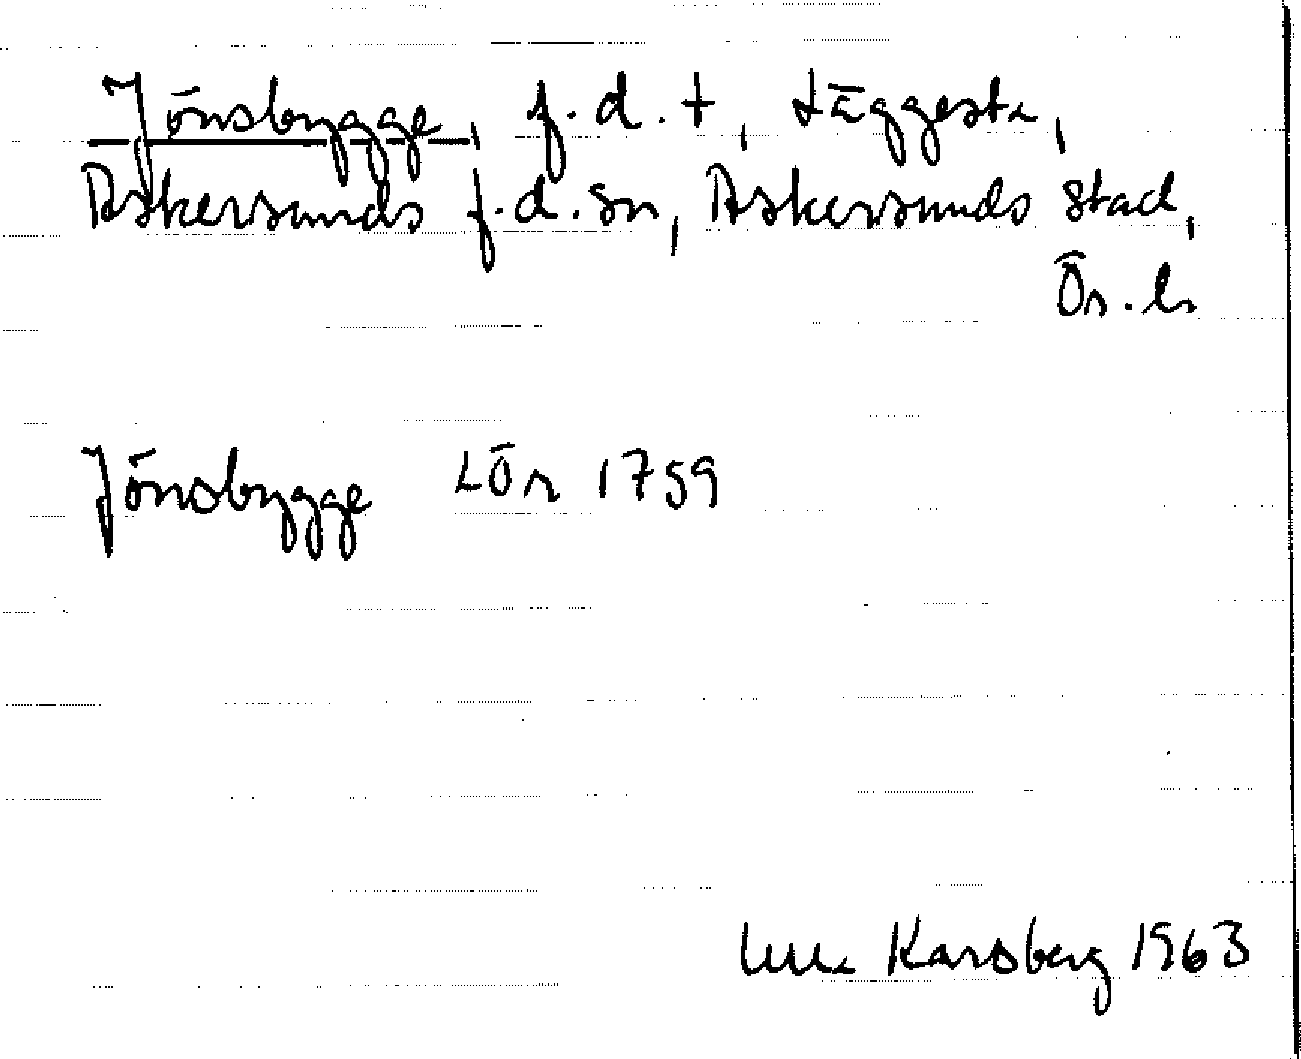 Jönsbygge, f.d. t, Läggesta,
Askersunds f.d. sn, Askersunds stad,
Ör. l.
Jönsbygge LÖr 1759
Karsberg 1963